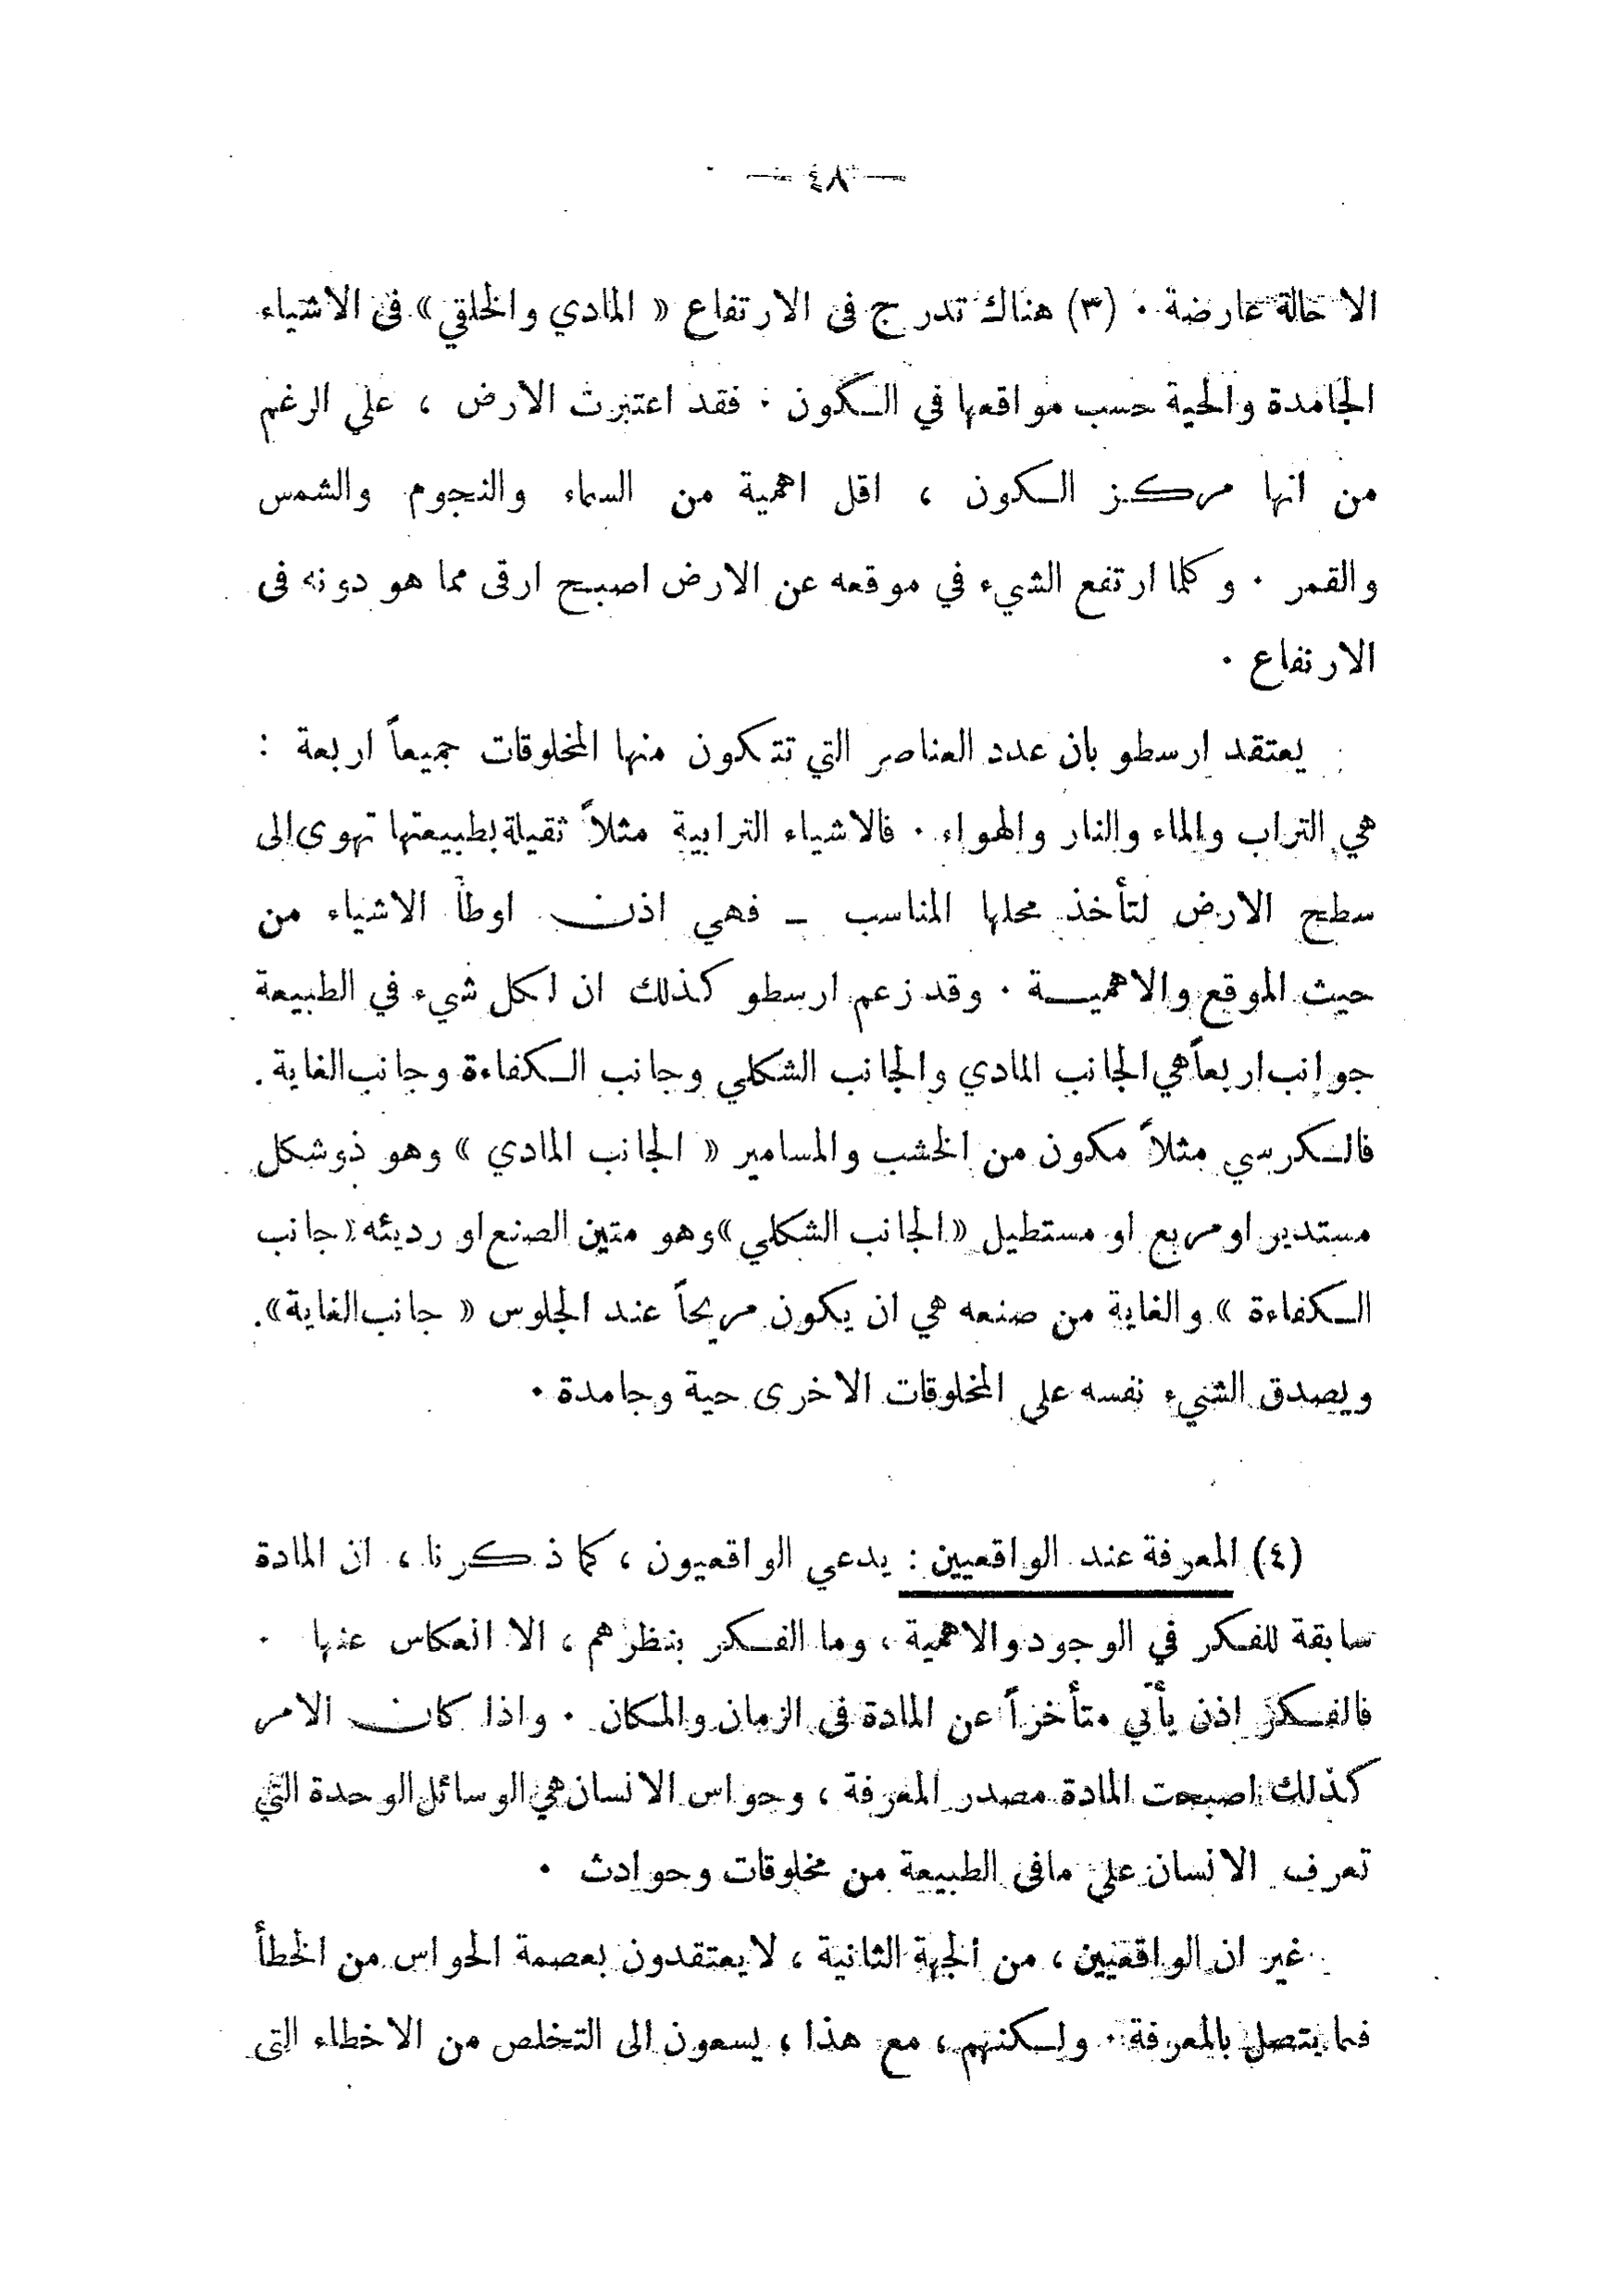 — ٤٨ —
الا حالة عارضة . (٣) هناك تدرج فى الارتفاع « المادي والخلقي » فى الاشياء
الجامدة والحية حسب مواقعها في الكون . فقد اعتبرت الارض ، على الرغم
من انها مركز الكون ، اقل اهمية من السماء والنجوم والشمس
والقمر . وكلما ارتفع الشيء في موقعه عن الارض اصبح ارقى مما هو دونه فى
الارتفاع .
يعتقد ارسطو بان عدد العناصر التي تتكون منها المخلوقات جميعاً اربعة :
هي التراب والماء والنار والهواء . فالاشياء الترابية مثلاً ثقيلة بطبيعتها تهوى الى
سطح الارض لتأخذ محلها المناسب ـ فهي اذن اوطأ الاشياء من
حيث الموقع والاهمية . وقد زعم ارسطو كذلك ان لكل شيء في الطبيعة
جوانب اربعاً هي الجانب المادي والجانب الشكلي وجانب الكفاءة وجانب الغاية .
فالكرسي مثلاً مكون من الخشب والمسامير « الجانب المادي » وهو ذو شكل
مستدير او مربع او مستطيل « الجانب الشكلي » وهو متين الصنع او رديئه « جانب
الكفاءة » والغاية من صنعه هي ان يكون مريحاً عند الجلوس « جانب الغاية » .
ويصدق الشيء نفسه على المخلوقات الاخرى حية وجامدة .
(٤) المعرفة عند الواقعيين : يدعي الواقعيون ، كما ذكرنا ، ان المادة
سابقة للفكر في الوجود والاهمية ، وما الفكر بنظرهم ، الا انعكاس عنها .
فالفكر اذن يأتي متأخراً عن المادة فى الزمان والمكان . واذا كان الامر
كذلك اصبحت المادة مصدر المعرفة ، وحواس الانسان هي الوسائل الوحدة التي
تعرف الانسان على مافى الطبيعة من مخلوقات وحوادث .
غير ان الواقعيين ، من الجهة الثانية ، لا يعتقدون بعصمة الحواس من الخطأ
فيما يتصل بالمعرفة . ولكنهم ، مع هذا ، يسعون الى التخلص من الاخطاء التى